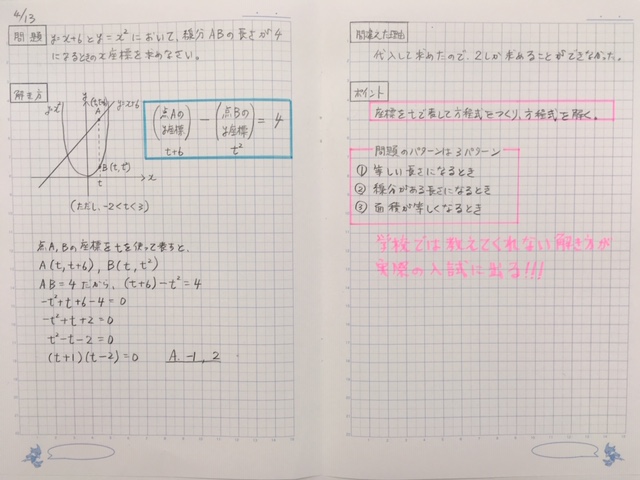 4/13
問題 y=x+6とy=x²において、線分ABの長さが4
になるときのx座標を求めなさい。
解き方
y=x²
(t, t+6)
A
y=x+6
B(t, t²)
x
t
(ただし、-2<t<3)
(点Aのy座標) - (点Bのy座標) = 4
t+6 t²
点A,Bの座標をtを使って表すと、
A(t, t+6), B(t, t²)
AB=4だから、(t+6)-t²=4
-t²+t+6-4=0
-t²+t+2=0
t²-t-2=0
(t+1)(t-2)=0 A. -1, 2
間違えた理由
代入して求めたので、2しか求めることができなかった。
ポイント
座標をtで表して方程式をつくり、方程式を解く。
問題のパターンは3パターン
① 等しい長さになるとき
② 線分がある長さになるとき
③ 面積が等しくなるとき
学校では教えてくれない解き方が
実際の入試に出る!!!